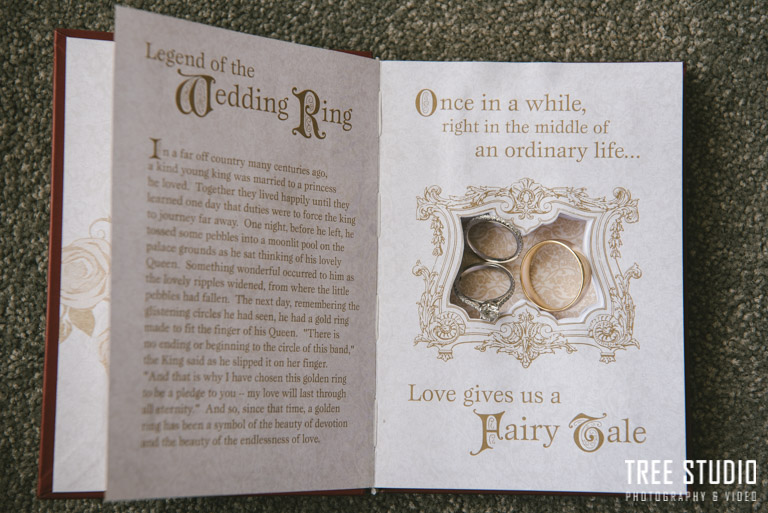 Legend of the
Wedding Ring
In a far off country many centuries ago,
a kind young king was married to a princess
he loved. Together they lived happily until they
learned one day that duties were to force the king
to journey far away. One night, before he left, he
tossed some pebbles into a moonlit pool on the
palace grounds as he sat thinking of his lovely
Queen. Something wonderful occurred to him as
the lovely ripples widened, from where the little
pebbles had fallen. The next day, remembering the
glistening circles he had seen, he had a gold ring
made to fit the finger of his Queen. "There is
no ending or beginning to the circle of this band,"
the King said as he slipped it on her finger.
"And that is why I have chosen this golden ring
to be a pledge to you – my love will last through
all eternity." And so, since that time, a golden
ring has been a symbol of the beauty of devotion
and the beauty of the endlessness of love.
Once in a while,
right in the middle of
an ordinary life...
Love gives us a
Fairy Tale
TREE STUDIO
PHOTOGRAPHY & VIDEO